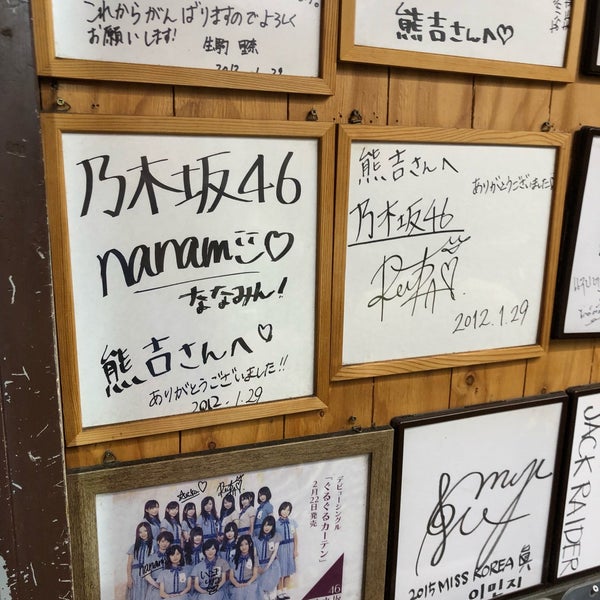 これからがんばりますのでよろしく
お願いします!
生駒
2012.1.29
熊吉さんへ♡
乃木坂46
nanami♡
ななみん!
熊吉さんへ♡
ありがとうございました!!
2012.1.29
熊吉さんへ
ありがとうございました
乃木坂46
2012.1.29
デビューシングル
「ぐるぐるカーテン」
2月22日発売
46
nanami
2015 MISS KOREA 眞
이민지
JACK RAIDER